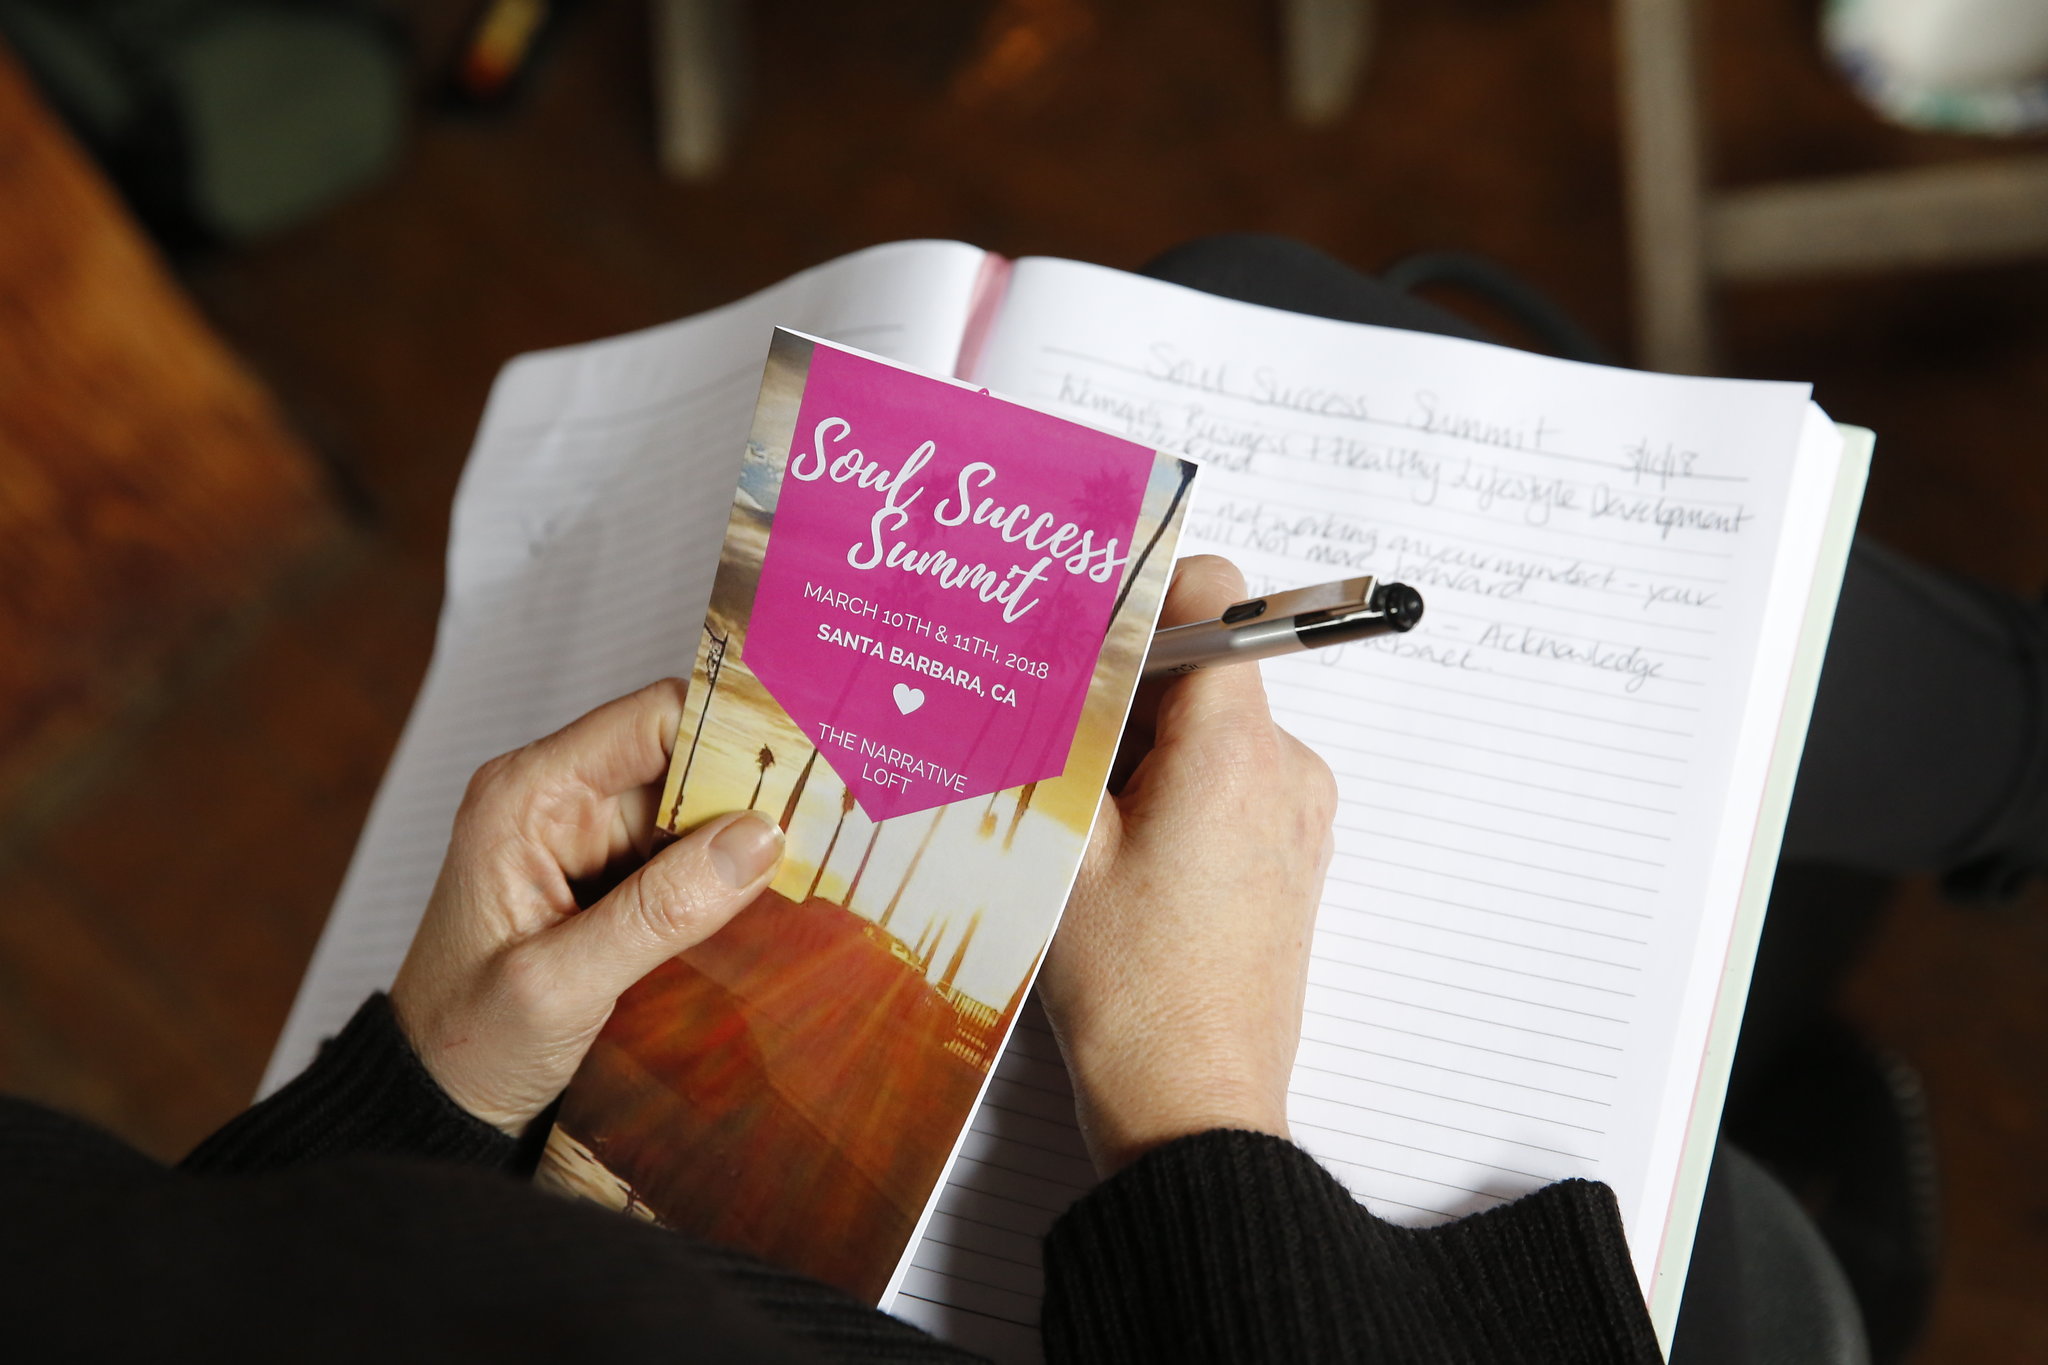 Soul Success
Summit
MARCH 10TH & 11TH, 2018
SANTA BARBARA, CA
THE NARRATIVE
LOFT
Soul Success Summit
3/10/18
Business + Healthy Lifestyle Development
Weekend
not working on your mindset - your
will Not move forward
- Acknowledge